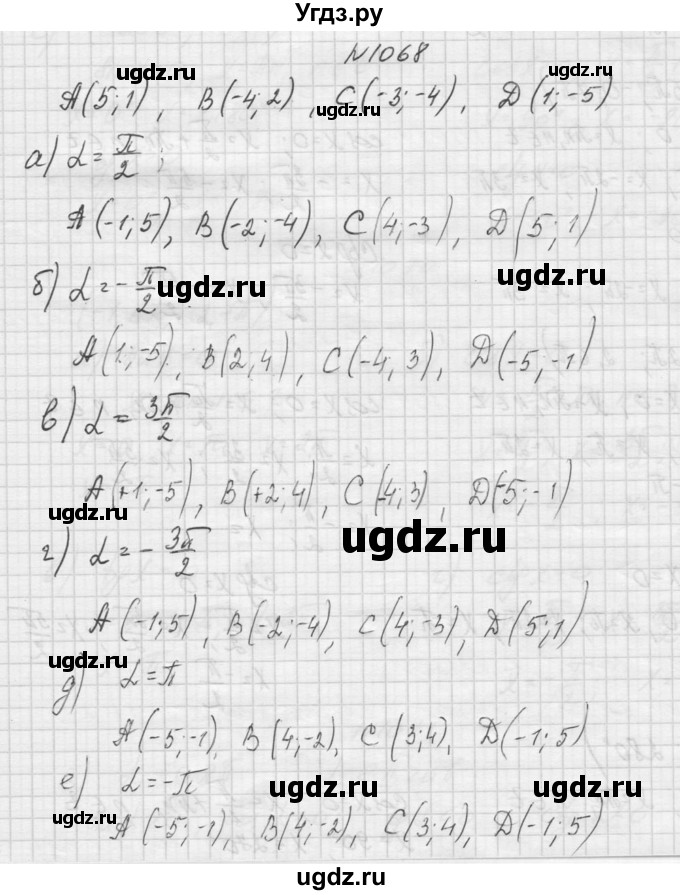 Угдз.ру
N1068
A(5;1), B(-4;2), C(-3;-4), D(1;-5)
ugdz.ru ugdz.ru
а) α = π/2;
A(-1;5), B(-2;-4), C(4;-3), D(5;1)
ugdz.ru ugdz.ru
б) α = -π/2
A(1;-5), B(2;4), C(-4;3), D(-5;-1)
ugdz.ru ugdz.ru
в) α = 3π/2
A(+1;-5), B(+2;4), C(-4;3), D(-5;-1)
ugdz.ru ugdz.ru
г) α = -3π/2
A(-1;5), B(-2;-4), C(4;-3), D(5;1)
ugdz.ru ugdz.ru
д) α = π
A(-5;-1), B(4;-2), C(3;4), D(-1;5)
е) α = -π
ugdz.ru ugdz.ru
ugdz.ru
A(-5;-1), B(4;-2), C(3;4), D(-1;5)
ugdz.ru